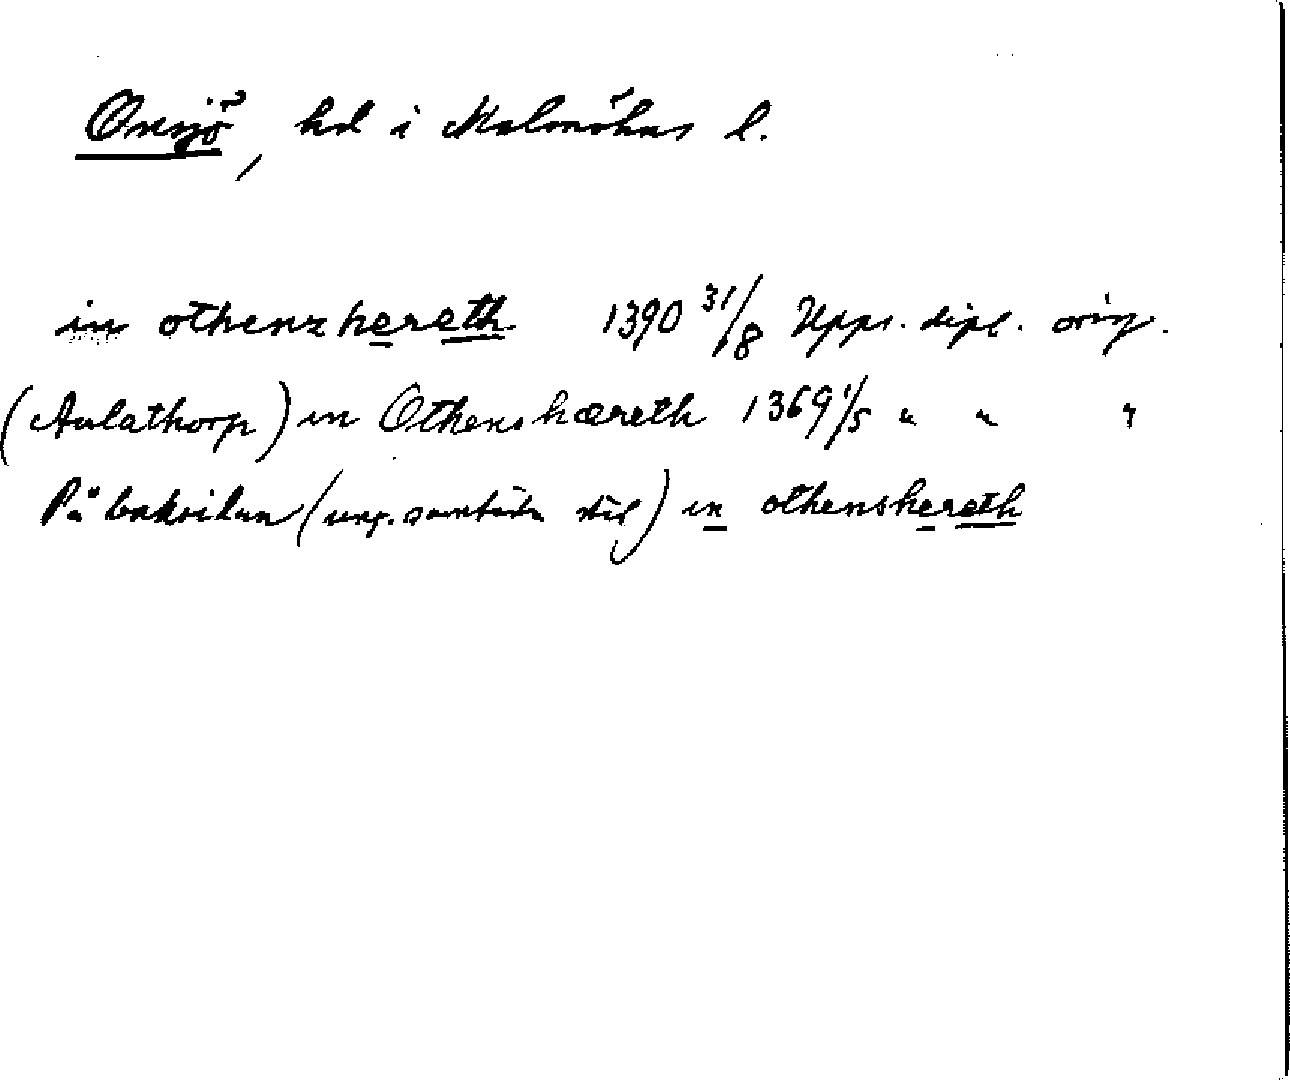 Onsjö, hd i Malmöhus l.
in othenzhereth 1390 31/8 Upps. dipl. orig.
(Aulathorp) in Othenshæreth 1369 1/5 " " "
På baksidan (ung. samtida stil) in othenshereth